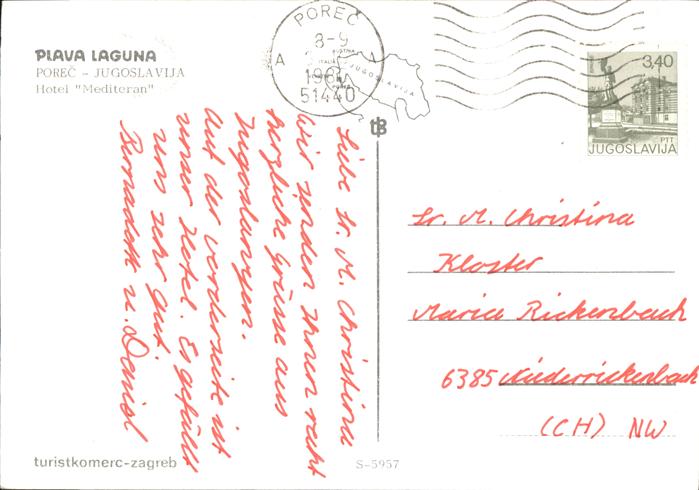 PLAVA LAGUNA
POREČ – JUGOSLAVIJA
Hotel "Mediteran"
POREČ
8-9
A A
51440
JUGOSLAVIJA
3,40
PTT
JUGOSLAVIJA
Liebe Sr. M. Christina
Wir senden Ihnen recht
herzliche Grüsse aus
Jugoslawien.
Auf der Vorderseite ist
unser Hotel. Es gefällt
uns sehr gut.
Bernadett u. Daniel
Sr. M. Christina
Kloster
Maria Rickenbach
6385 Niederrickenbach
(CH) NW
turistkomerc-zagreb
S-5957